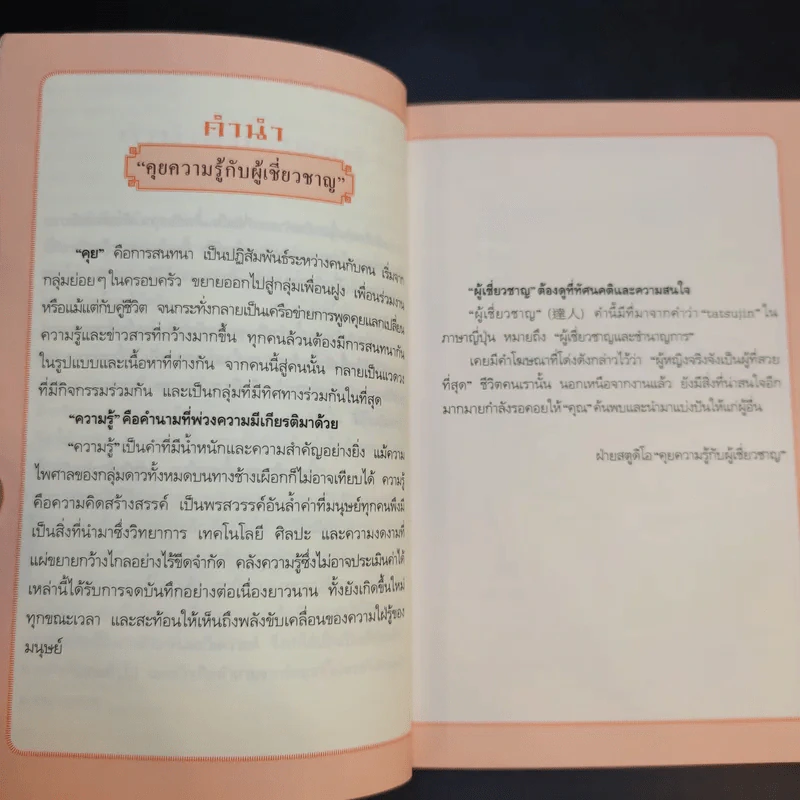 คำนำ
“คุยความรู้กับผู้เชี่ยวชาญ”
“คุย” คือการสนทนา เป็นปฏิสัมพันธ์ระหว่างคนกับคน เริ่มจาก
กลุ่มย่อยๆ ในครอบครัว ขยายออกไปสู่กลุ่มเพื่อนฝูง เพื่อนร่วมงาน
หรือแม้แต่กับคู่ชีวิต จนกระทั่งกลายเป็นเครือข่ายการพูดคุยแลกเปลี่ยน
ความรู้และข่าวสารที่กว้างมากขึ้น ทุกคนล้วนต้องมีการสนทนากัน
ในรูปแบบและเนื้อหาที่ต่างกัน จากคนนี้สู่คนนั้น กลายเป็นแวดวง
ที่มีกิจกรรมร่วมกัน และเป็นกลุ่มที่มีทิศทางร่วมกันในที่สุด
“ความรู้” คือคำนามที่พ่วงความมีเกียรติมาด้วย
“ความรู้” เป็นคำที่มีน้ำหนักและความสำคัญอย่างยิ่ง แม้ความ
ไพศาลของกลุ่มดาวทั้งหมดบนทางช้างเผือกก็ไม่อาจเทียบได้ ความรู้
คือความคิดสร้างสรรค์ เป็นพรสวรรค์อันล้ำค่าที่มนุษย์ทุกคนพึงมี
เป็นสิ่งที่นำมาซึ่งวิทยาการ เทคโนโลยี ศิลปะ และความงดงามที่
แผ่ขยายกว้างไกลอย่างไร้ขีดจำกัด คลังความรู้ซึ่งไม่อาจประเมินค่าได้
เหล่านี้ได้รับการจดบันทึกอย่างต่อเนื่องยาวนาน ทั้งยังเกิดขึ้นใหม่
ทุกขณะเวลา และสะท้อนให้เห็นถึงพลังขับเคลื่อนของความใฝ่รู้ของ
มนุษย์
“ผู้เชี่ยวชาญ” ต้องดูที่ทัศนคติและความสนใจ
“ผู้เชี่ยวชาญ” (達人) คำนี้มีที่มาจากคำว่า “tatsujin” ใน
ภาษาญี่ปุ่น หมายถึง “ผู้เชี่ยวชาญและชำนาญการ”
เคยมีคำโฆษณาที่โด่งดังกล่าวไว้ว่า “ผู้หญิงจริงจังเป็นผู้ที่สวย
ที่สุด” ชีวิตคนเรานั้น นอกเหนือจากงานแล้ว ยังมีสิ่งที่น่าสนใจอีก
มากมายกำลังรอคอยให้ “คุณ” ค้นพบและนำมาแบ่งปันให้แก่ผู้อื่น
ฝ่ายสตูดิโอ “คุยความรู้กับผู้เชี่ยวชาญ”